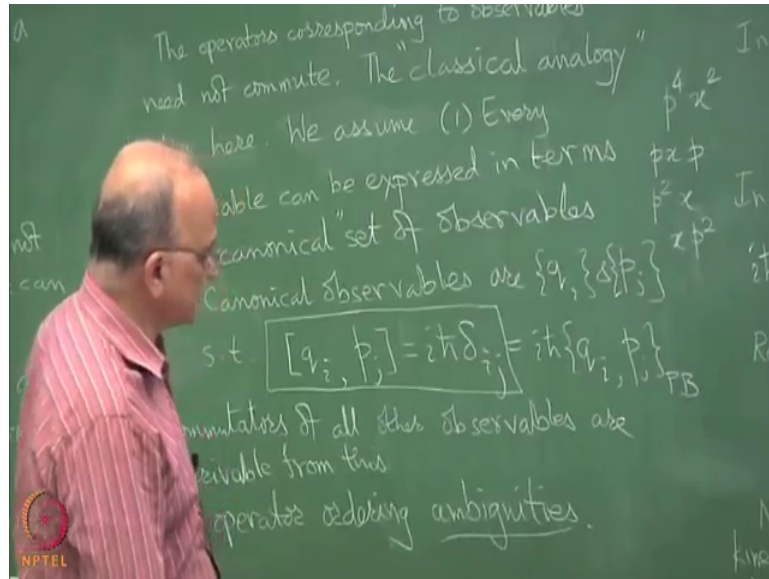 a
The operators corresponding to observables
need not commute. The "classical analogy"
here. We assume (1) Every
able can be expressed in terms
canonical" set of observables
Canonical observables are {q_i} & {p_j}
s.t. [q_i, p_j] = iħδ_ij = iħ{q_i, p_j}_PB
mmutators of all other observables are
rivable from this
operator ordering ambiguities.
p^4 x^2
p x p
p^2 x
x p^2
not
can
In
In
iħ
R
N
kine
NPTEL